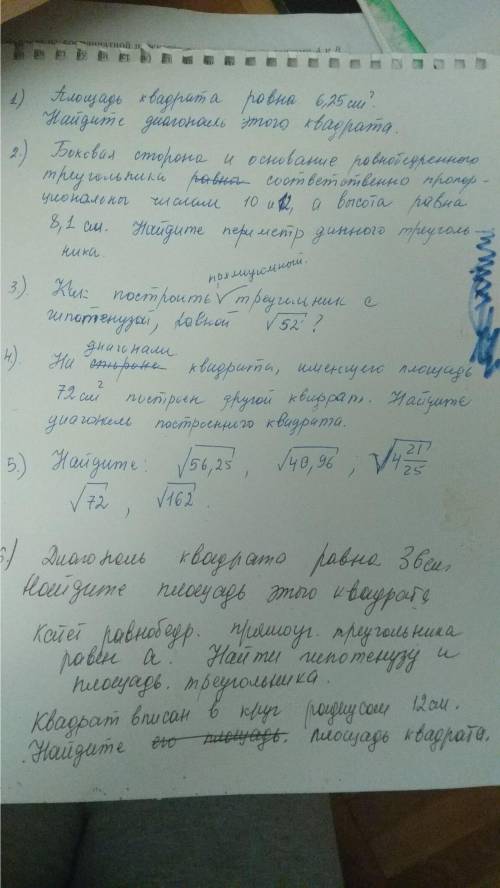 1) Площадь квадрата равна 6,25 см².
Найдите диагональ этого квадрата.
2.) Боковая сторона и основание равнобедренного
треугольника равна соответственно пропор-
циональны числам 10 и 12, а высота равна
8,1 см. Найдите периметр данного треуголь-
ника.
прямоугольный.
3) Как построить √ треугольник с
гипотенузой, равной √52 ?
диагонали
4). На стороне квадрата, имеющего площадь
72 см² построен другой квадрат. Найдите
диагональ построенного квадрата.
5.) Найдите: √56,25 , √40,96 ; √4 21/25
√72 , √162 .
6) Диагональ квадрата равна 36 см.
Найдите площадь этого квадрата
Катет равнобедр. прямоуг. треугольника
равен a. Найти гипотенузу и
площадь. треугольника.
Квадрат вписан в круг радиусом 12 см.
Найдите его площадь. площадь квадрата.